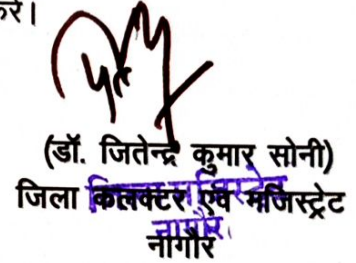 रें।
(डॉ. जितेन्द्र कुमार सोनी)
जिला कलक्टर एवं मजिस्ट्रेट
नागौर.
नागौर